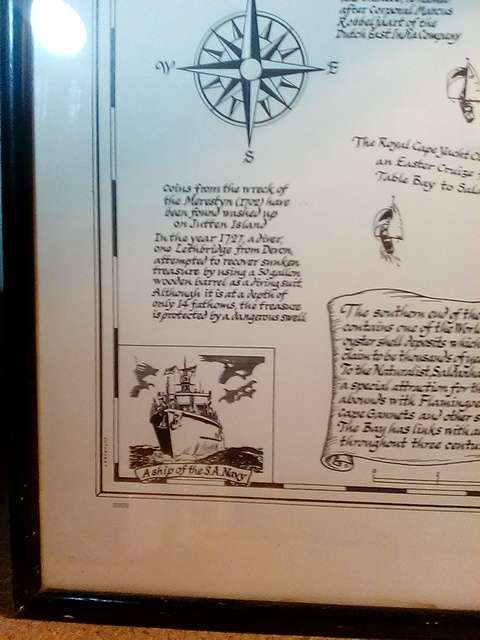 after Corporal Marcus
Robbeljaart of the
Dutch East India Company
W
E
S
The Royal Cape Yacht
an Easter Cruise
Table Bay to
coins from the wreck of
the Merestyn (1702) have
been found washed up
on Jutten Island
In the year 1727, a diver,
one Lethbridge from Devon,
attempted to recover sunken
treasure by using a 50 gallon
wooden barrel as a diving suit.
Although it is at a depth of
only 14 fathoms, the treasure
is protected by a dangerous swell
The southern end of the
contains one of the World
oyster shell deposits which
claim to be thousands of
To the Naturalist, Saldanha
a special attraction for
abounds with Flamingo
Cape Gannets and other
The Bay has links with
throughout three
A ship of the S.A. Navy
0